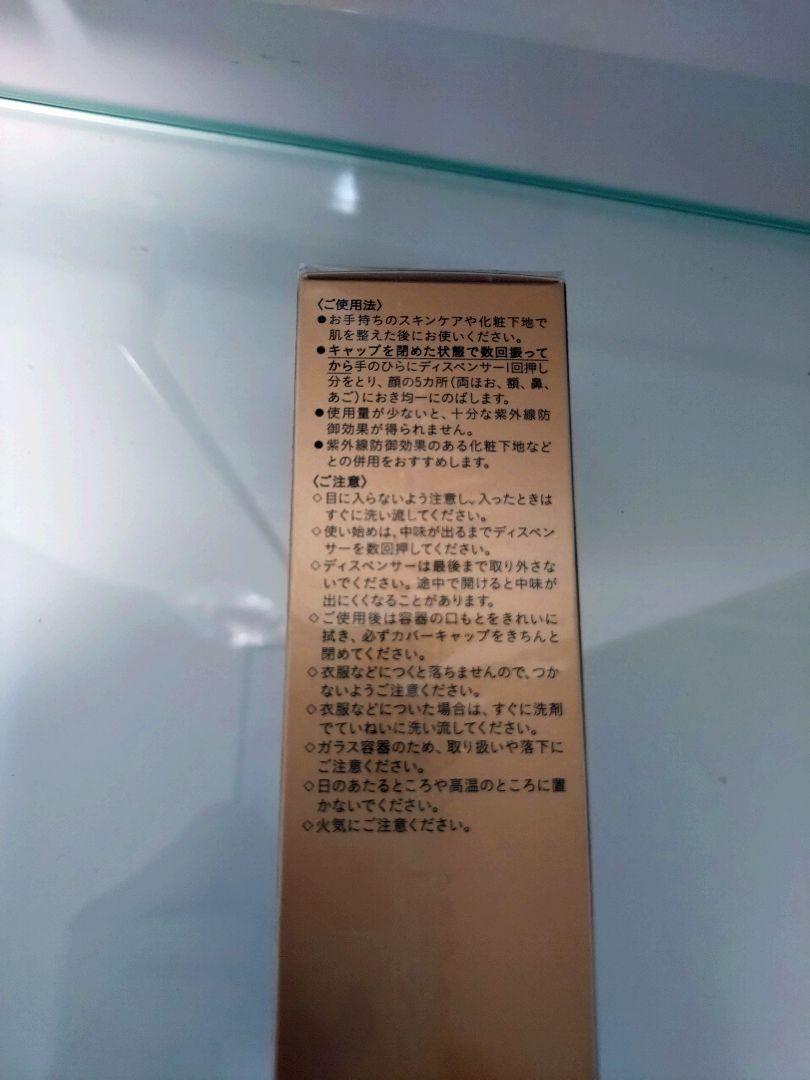 〈ご使用法〉
●お手持ちのスキンケアや化粧下地で
肌を整えた後にお使いください。
●キャップを閉めた状態で数回振って
から手のひらにディスペンサー1回押し
分をとり、顔の5カ所(両ほお、額、鼻、
あご)におき均一にのばします。
●使用量が少ないと、十分な紫外線防
御効果が得られません。
●紫外線防御効果のある化粧下地など
との併用をおすすめします。
〈ご注意〉
◇目に入らないよう注意し、入ったときは
すぐに洗い流してください。
◇使い始めは、中味が出るまでディスペン
サーを数回押してください。
◇ディスペンサーは最後まで取り外さな
いでください。途中で開けると中味が
出にくくなることがあります。
◇ご使用後は容器の口もとをきれいに
拭き、必ずカバーキャップをきちんと
閉めてください。
◇衣服などにつくと落ちませんので、つか
ないようご注意ください。
◇衣服などについた場合は、すぐに洗剤
でていねいに洗い流してください。
◇ガラス容器のため、取り扱いや落下に
ご注意ください。
◇日のあたるところや高温のところに置
かないでください。
◇火気にご注意ください。